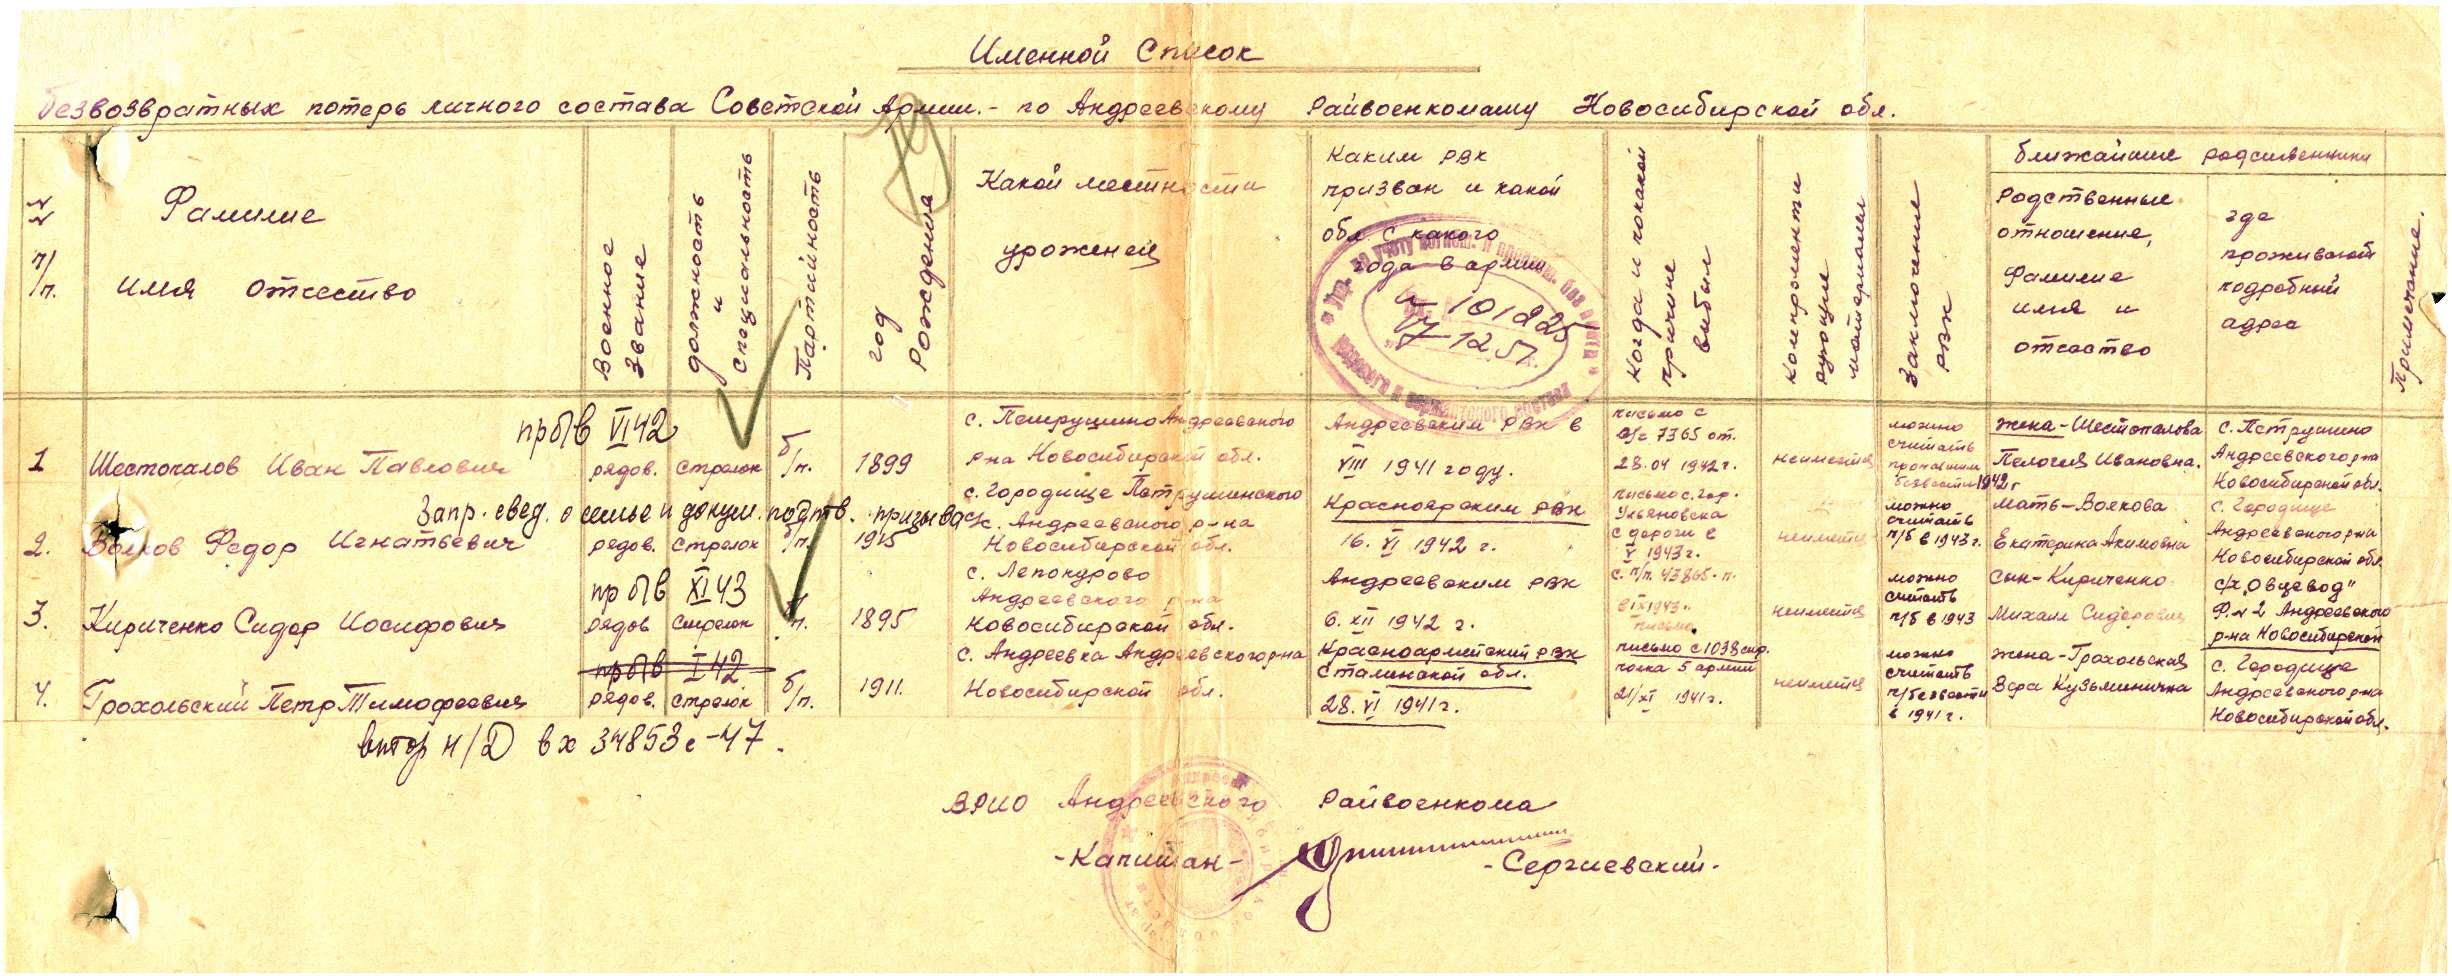 Именной Список
безвозвратных потерь личного состава Советской Армии. - по Андреевскому Райвоенкомату Новосибирской обл.
№№ п/п.
Фамилие
имя отчество
Военное звание
должность и специальность
Партийность
год Рождения
Какой местности
уроженец
Каким РВК
призван и какой
обл. с какого
года в армии
Когда и по какой причине выбыл
Заключение РВК
ближайшие родственники
Родственные
отношение,
Фамилие
имя и
отчество
где
проживает
подробный
адрес
Примечание.
101225
12.51г.
пр б/в VI 42
1 Шестопалов Иван Павлович
рядов. стрелок б/п. 1899
с. Петрушино Андреевского
р-на Новосибирской обл.
Андреевским РВК в
VIII 1941 году.
письмо с
п/с 7365 от.
28.04 1942 г.
неимеется
можно
считать
пропавшим
безвести 1942 г
жена - Шестопалова
Пелогея Ивановна.
с. Петрушино
Андреевского р-на
Новосибирской обл.
Запр. свед. о семье и докум. подтв. призыва
2. Волков Федор Игнатьевич
рядов. стрелок б/п. 1915
с. Городище Петрушинского
с/с. Андреевского р-на
Новосибирской обл.
Красноярским РВК
16. VI 1942 г.
письмо с. гор.
Ульяновска
с дороги в
V 1943 г.
неимеется
можно
считать
п/б в 1943 г.
мать - Волкова
Екатерина Акимовна
с. Городище
Андреевского р-на
Новосибирской обл.
пр б/в XI 43
3. Кириченко Сидор Иосифович
рядов стрелок б/п. 1895
с. Лепокурово
Андреевского р-на
Новосибирской обл.
Андреевским РВК
6. XII 1942 г.
с. п/п. 43865-п.
в IX 1943 г.
письмо
неимеется
можно
считать
п/б в 1943
сын - Кириченко
Михаил Сидорович
с/х „Овцевод"
Ф. №2 Андреевского
р-на Новосибирской
пр б/в I 42
4. Грохольский Петр Тимофеевич
рядов. стрелок б/п. 1911.
с. Андреевка Андреевского р-на
Новосибирской обл.
Красноармейский РВК
Сталинской обл.
28. VI 1941 г.
письмо с 1038 стр.
полка 5 армии
21/XI 1941 г.
неимеется
можно
считать
п/безвести
в 1941 г.
жена - Грохольская
Вера Кузьминична
с. Городище
Андреевского р-на
Новосибирской обл.
втор н/D вх 34853с-47.
ВРИО Андреевского Райвоенкома
- Капитан - - Сергиевский -